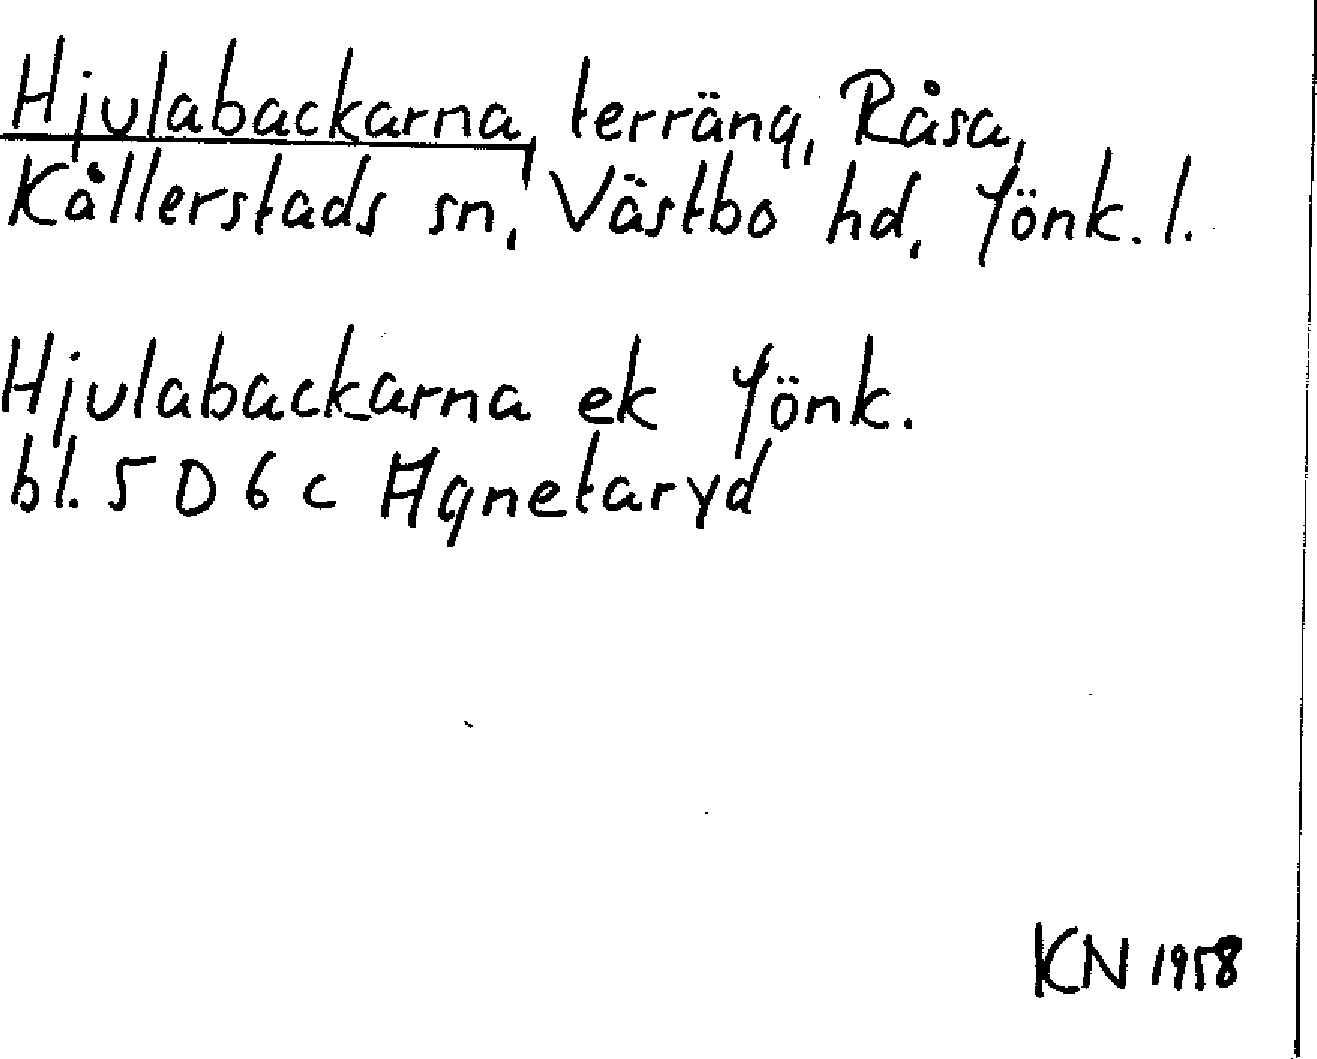 Hjulabackarna, terräng, Råsa,
Kållerstads sn, Västbo hd, Jönk. l.
Hjulabackarna ek Jönk.
bl. 5 D 6 c Agnetaryd
KN 1958